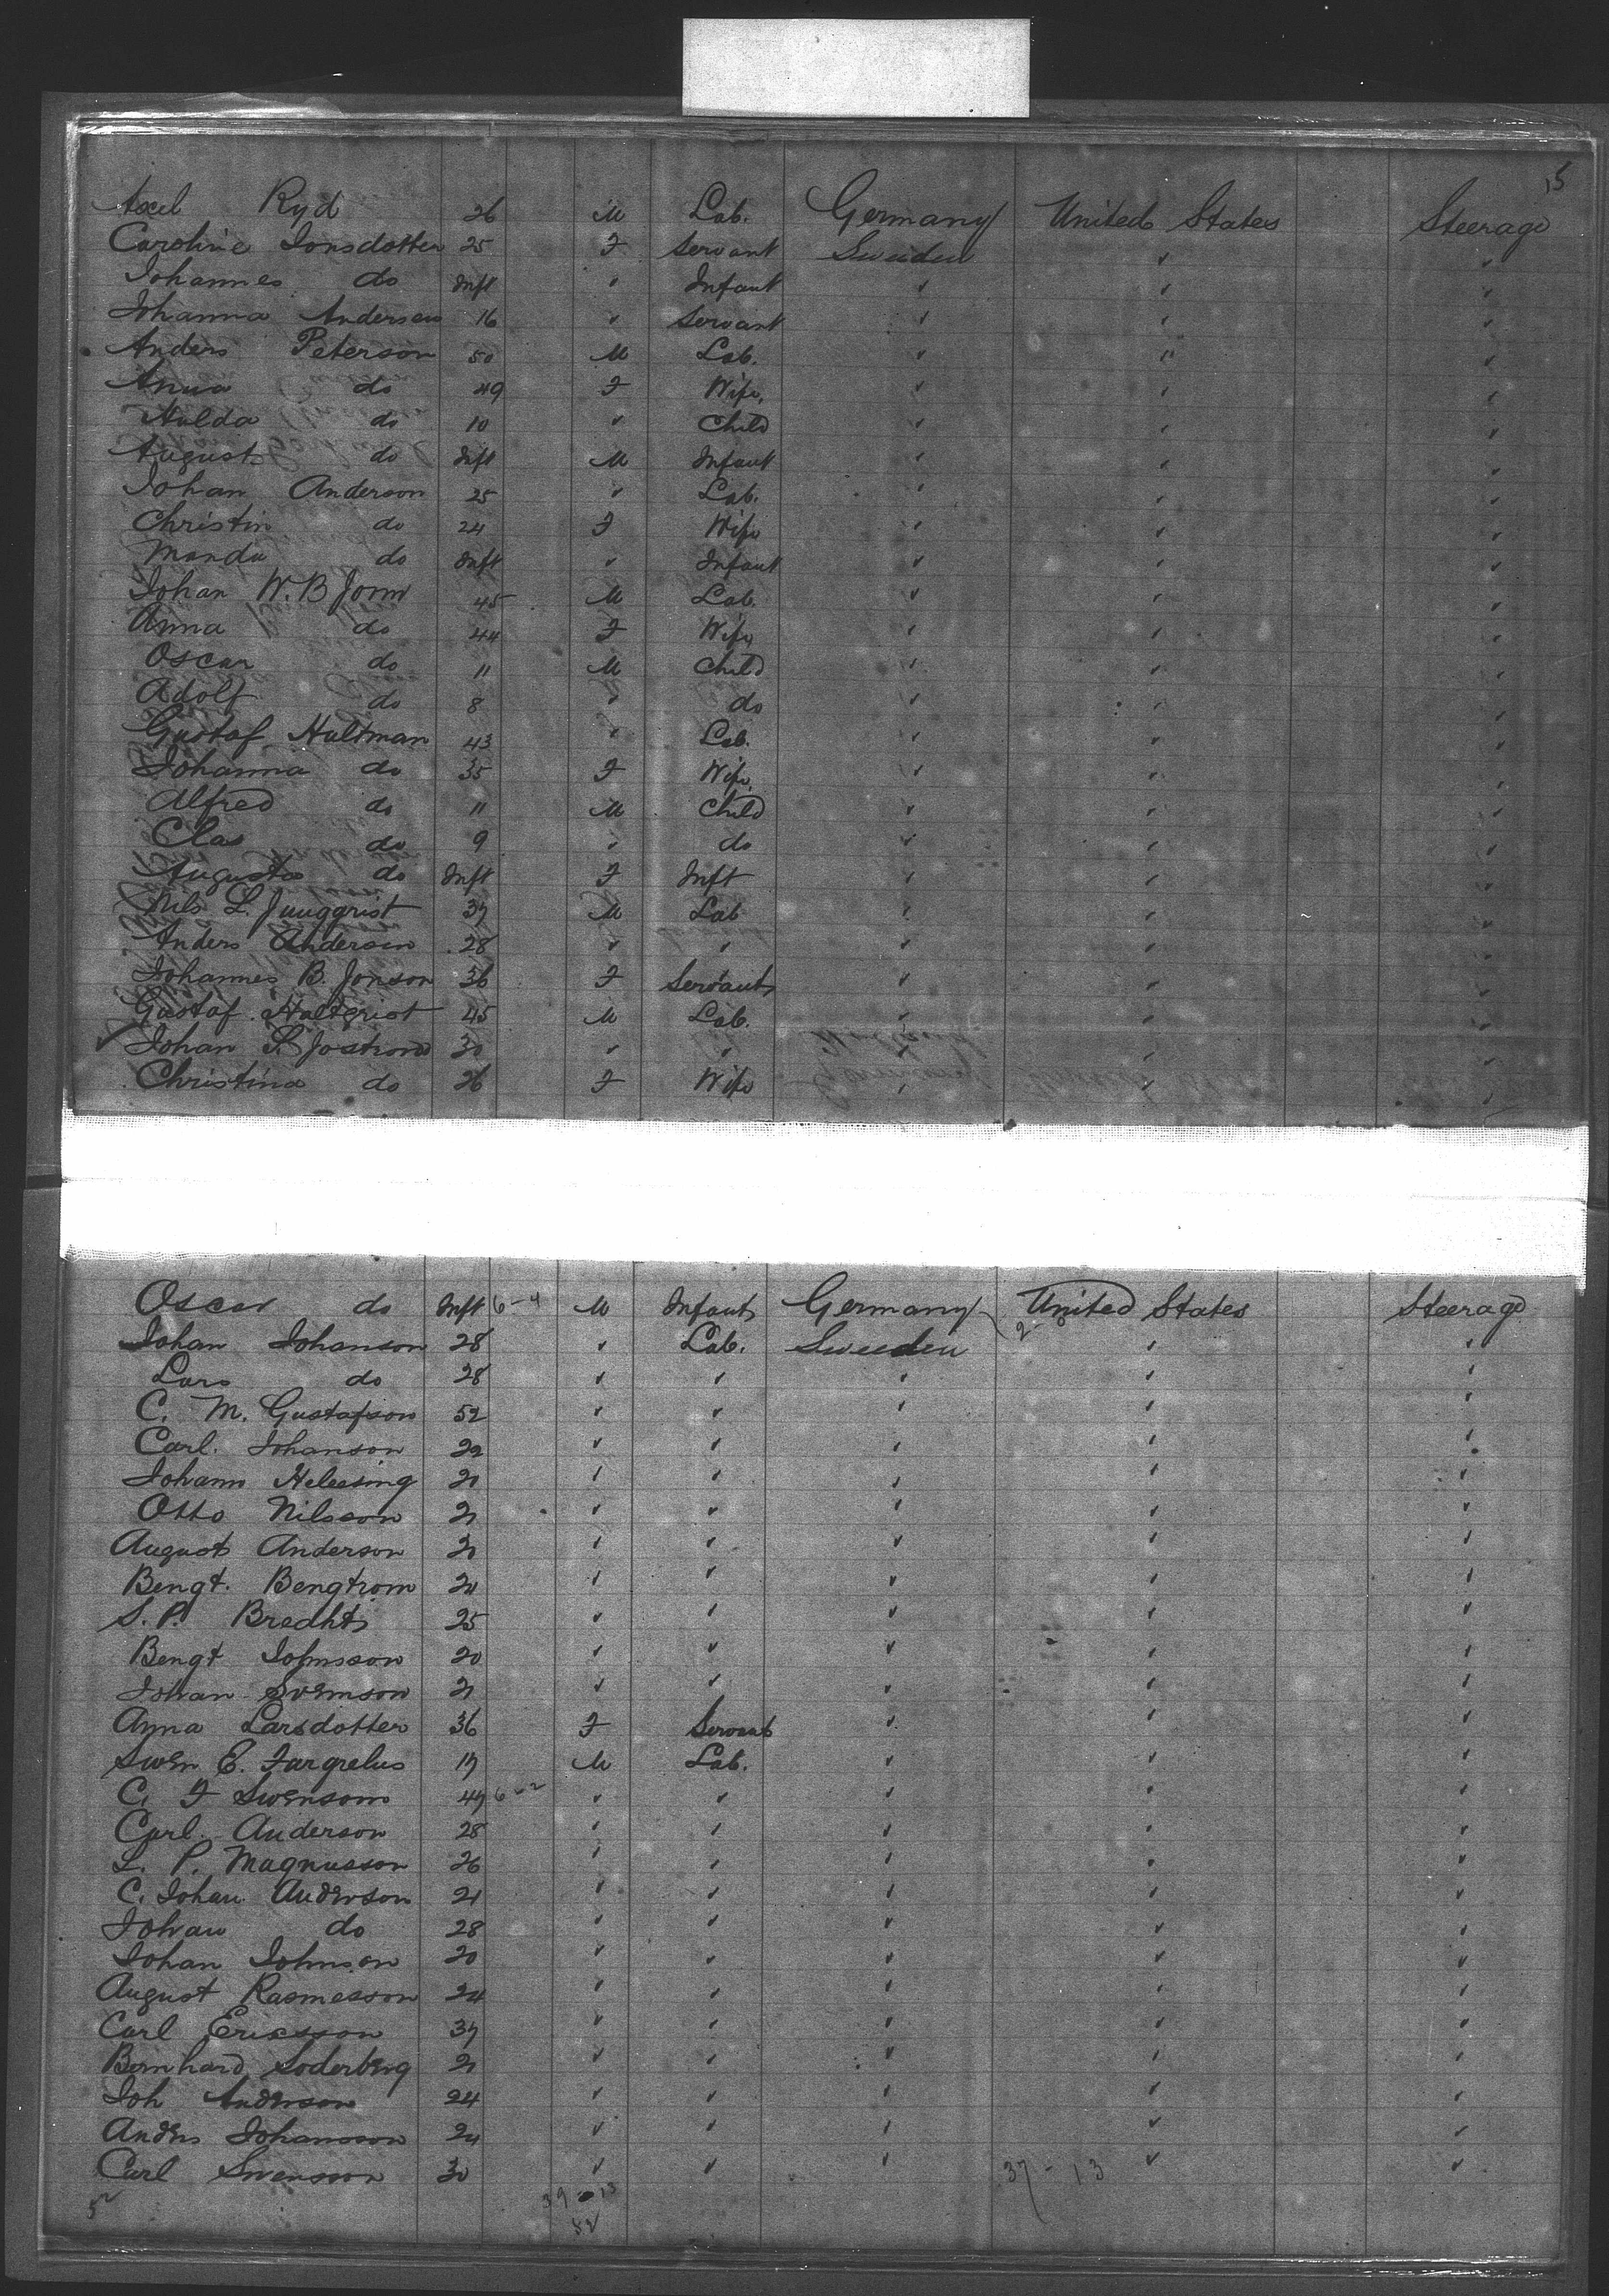 15
Axel Ryd 26 M Lab. Germany United States Steerage
Caroline Jonsdotter 25 F Servant Sweden " "
Johannes do Inft " Infant " " "
Johanna Anderson 16 " Servant " " "
Anders Peterson 50 M Lab. " " "
Anna do 49 F Wife. " " "
Hulda do 10 " Child " " "
August do Inft M Infant " " "
Johan Anderson 25 " Lab. " " "
Christin do 24 F Wife " " "
Manda do Inft " Infant " " "
Johan W. B 45 M Lab. " " "
Anna do 44 F Wife " " "
Oscar do 11 M Child " " "
Adolf do 8 " do " " "
Gustaf Hultman 43 " Lab. " " "
Johanna do 35 F Wife " " "
Alfred do 11 M Child " " "
Clas do 9 " do " " "
Augusta do Inft F Inft " " "
Nils L. 37 M Lab " " "
Anders Anderson 28 " " " " "
Johannes B. Jonson 36 F Servant " " "
Gustaf 45 M Lab. " " "
Johan 30 " " " " "
Christina do 26 F Wife " " "
Oscar do Inft 6-4 M Infant Germany United States Steerage
Johan Johanson 28 " Lab. Sweden " "
Lars do 28 " " " " "
C. M. Gustafson 52 " " " " "
Carl. Johanson 22 " " " " "
Johann 20 " " " " "
Otto Nilsson 21 " " " " "
August Anderson 20 " " " " "
Bengt. Bengtrom 20 " " " " "
S. P. 25 " " " " "
Bengt Johnsson 20 " " " " "
Johan Svenson 21 " " " " "
Anna Larsdotter 36 F Servant " " "
Swen E. 17 M Lab. " " "
C. F Swenson 47 6-2 " " " " "
Carl. Anderson 28 " " " " "
L. P. Magnusson 26 " " " " "
C. Johan Anderson 21 " " " " "
Johan do 28 " " " " "
Johan Johnson 20 " " " " "
August Rasmesson 24 " " " " "
Carl Ericsson 37 " " " " "
Bernhard Soderberg 21 " " " " "
Joh Anderson 24 " " " " "
Anders Johansson 24 " " " " "
Carl Swensson 30 " " " " "
37-13
39-13
52
52